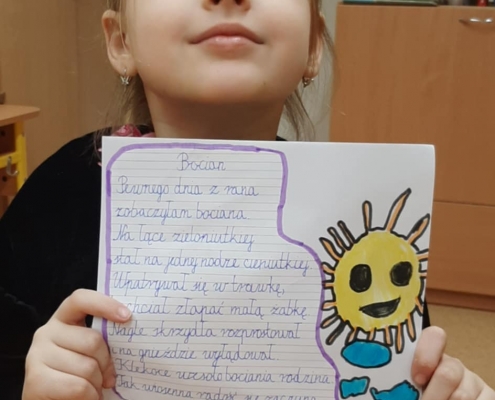 Bocian
Pewnego dnia z rana
zobaczyłam bociana
Na łące zieloniutkiej
stał na jednej nodze cieniutkiej.
Wpatrywał się w trawkę,
i chciał złapać małą żabkę
Nagle skrzydła rozprostował
i na gnieździe wylądował.
Klekoce wesoło bociania rodzina
Tak wiosenna radość się zaczyna